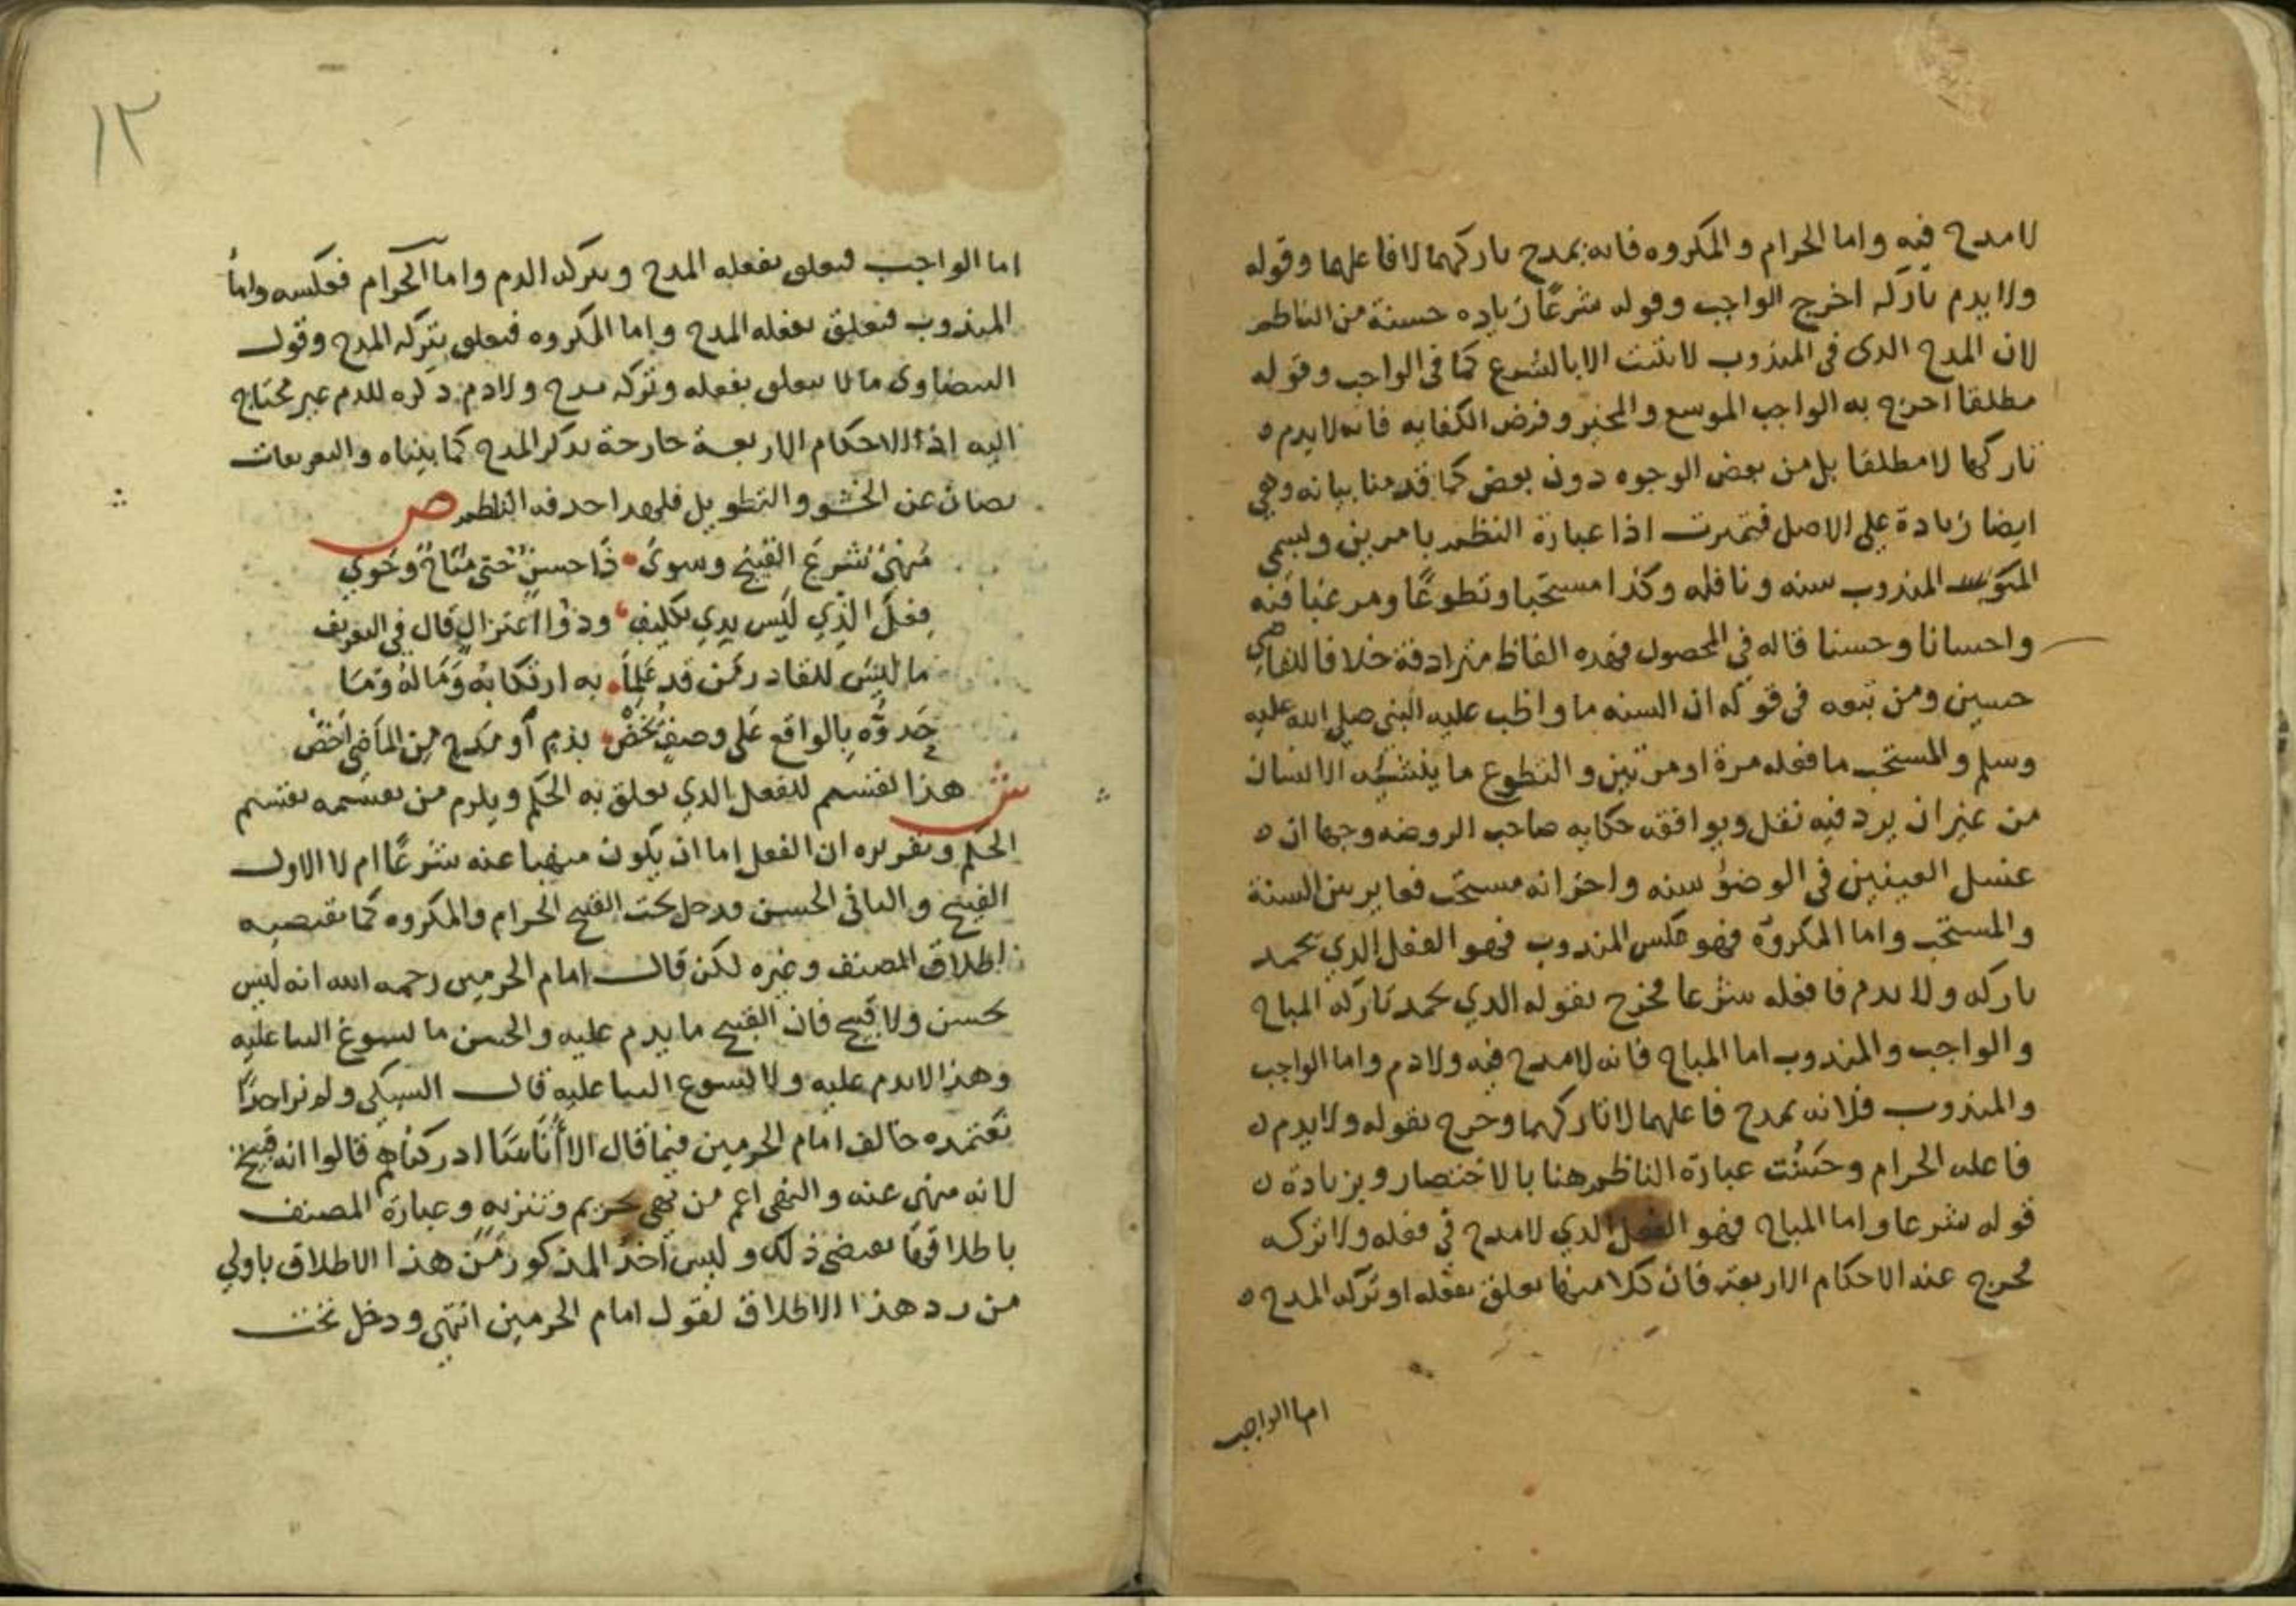 لا مدح فيه واما الحرام والمكروه فانه يمدح تاركهما لا فاعلهما وقوله
ولا يذم تاركه اخرج الواجب وقوله شرعًا زياده حسنة من الناظم
لان المدح الذى في المندوب لا يثبت الا بالشرع كما في الواجب وقوله
مطلقا اخرج به الواجب الموسع والمخير وفرض الكفايه فانه لا يذم
تاركها لا مطلقا بل من بعض الوجوه دون بعض كما قدمنا بيانه وهي
ايضا زيادة على الاصل فتميزت اذا عبارة النظم بامرين ويسمى
المندوب سنه ونافله وكذا مستحبا وتطوعًا ومرغبا فيه
واحسانا وحسنا قاله في المحصول فهذه الفاظ مترادفة خلافا للقاضي
حسين ومن تبعه فى قوله ان السنه ما واظب عليه النبى صلى الله عليه
وسلم والمستحب ما فعله مرة او مرتين والتطوع ما ينشئه الانسان
من غير ان يرد فيه نقل ويوافقه حكايه صاحب الروضه وجها ان
غسل العينين في الوضوء سنه واخر انه مستحب فغاير بين السنة
والمستحب واما المكروه فهو عكس المندوب فهو الفعل الذي يحمد
تاركه ولا يذم فاعله شرعا فخرج بقوله الذي يحمد تاركه المباح
والواجب والمندوب اما المباح فانه لا مدح فيه ولا ذم واما الواجب
والمندوب فلانه يمدح فاعلهما لا تاركهما وخرج بقوله ولا يذم
فاعله الحرام وحسنت عبارة الناظم هنا بالاختصار وبزيادة
قوله شرعا واما المباح فهو الفعل الذي لا مدح في فعله ولا تركه
فخرج عنه الاحكام الاربعة فان كلا منها تعلق بفعله او تركه المدح
اما الواجب
١٢
اما الواجب فتعلق بفعله المدح وبتركه الذم واما الحرام فعكسه واما
المندوب فتعلق بفعله المدح واما المكروه فتعلق بتركه المدح وقول
البيضاوى ما لا يتعلق بفعله وتركه مدح ولا ذم ذكره للذم غير محتاج
اليه اذ الاحكام الاربعة خارجة بذكر المدح كما بيناه والتعريفات
تصان عن الحشو والتطويل فلهذا حذفه الناظم ص
منهىُّ شرع القبيح وسوى ذا حسن حتى مباح وحوي
فعل الذي ليس بذي تكليف وذو اعتزال قال في التعريف
ما ليس للقادر ممن قد علما به ارتكابه وماله وما
حدوه بالواقع على وصف يخص بذم او مدح من الماضى اخص
ش هذا تقسيم للفعل الذي تعلق به الحكم ويلزم من تقسيمه تقسيم
الحكم وتقريره ان الفعل اما ان يكون منهيا عنه شرعًا ام لا الاول
القبيح والثاني الحسن ودخل تحت القبيح الحرام والمكروه كما يقتضيه
اطلاق المصنف وغيره لكن قال امام الحرمين رحمه الله انه ليس
بحسن ولا قبيح فان القبيح ما يذم عليه والحسن ما يسوغ الثنا عليه
وهذا لا يذم عليه ولا يسوغ الثنا عليه قال السبكى ولم نر احدًا
نعتمده خالف امام الحرمين فيما قال الا أناسًا ادركناهم قالوا انه قبيح
لانه منهى عنه والنهى اعم من نهى تحريم وتنزيه وعبارة المصنف
باطلاقها تقتضى ذلك وليس اخذ المذكور من هذا الاطلاق باولي
من رد هذا الاطلاق لقول امام الحرمين انتهى ودخل تحت